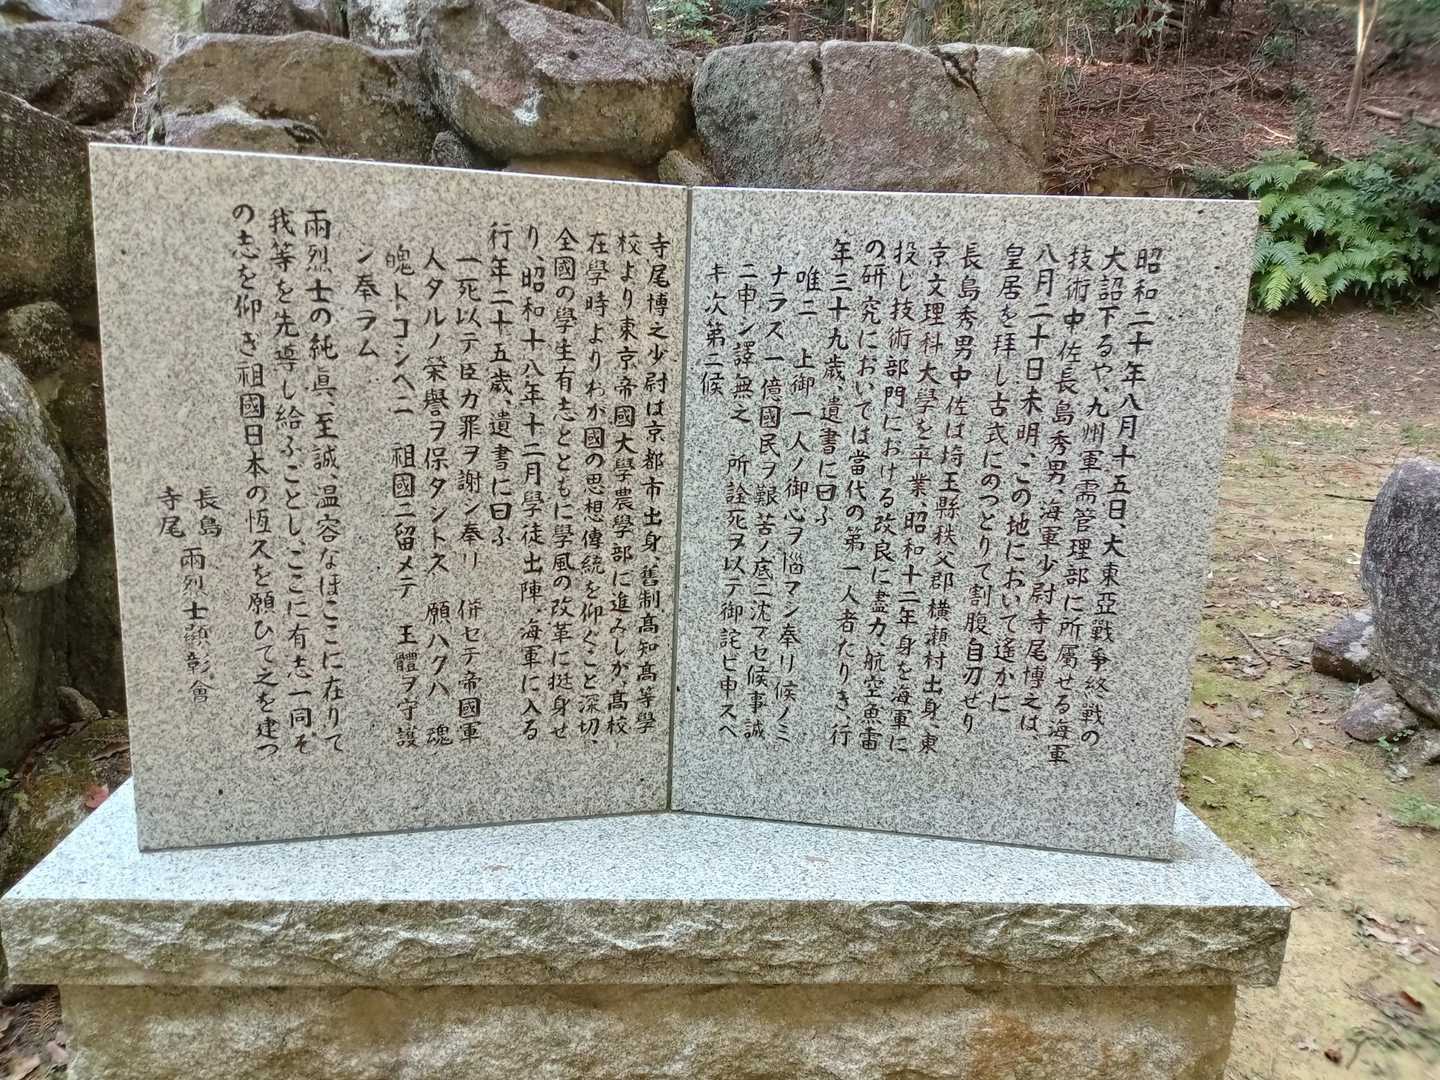 昭和二十年八月十五日、大東亞戰爭終戰の
大詔下るや、九州軍需管理部に所屬せる海軍
技術中佐長島秀男、海軍少尉寺尾博之は
八月二十日未明、この地において遙かに
皇居を拜し古式にのっとりて割腹自刃せり
長島秀男中佐は埼玉縣秩父郡横瀬村出身、東
京文理科大學を卒業、昭和十二年身を海軍に
投じ技術部門における改良に盡力、航空魚雷
の研究においては當代の第一人者たりき、行
年三十九歳、遺書に曰ふ
唯ニ 上御一人ノ御心ヲ惱マシ奉リ候ノミ
ナラス一億國民ヲ艱苦ノ底ニ沈マセ候事誠
ニ申シ譯無之 所詮死ヲ以テ御詫ビ申スヘ
キ次第ニ候
寺尾博之少尉は京都市出身、舊制高知高等學
校より東京帝國大學農學部に進みしが、高校
在學時よりわが國の思想傳統を仰ぐこと深切、
全國の學生有志とともに學風の改革に挺身せ
り、昭和十八年十二月學徒出陣、海軍に入る
行年二十五歳、遺書に曰ふ
一死以テ臣カ罪ヲ謝シ奉リ 併セテ帝國軍
人タルノ榮譽ヲ保タントス 願ハクハ 魂
魄トコシヘニ 祖國ニ留メテ 玉體ヲ守護
シ奉ラム
兩烈士の純眞、至誠、温容なほここに在りて
我等を先導し給ふごとし、ここに有志一同、そ
の志を仰き祖國日本の恆久を願ひて之を建つ
長島
寺尾 兩烈士顯彰會